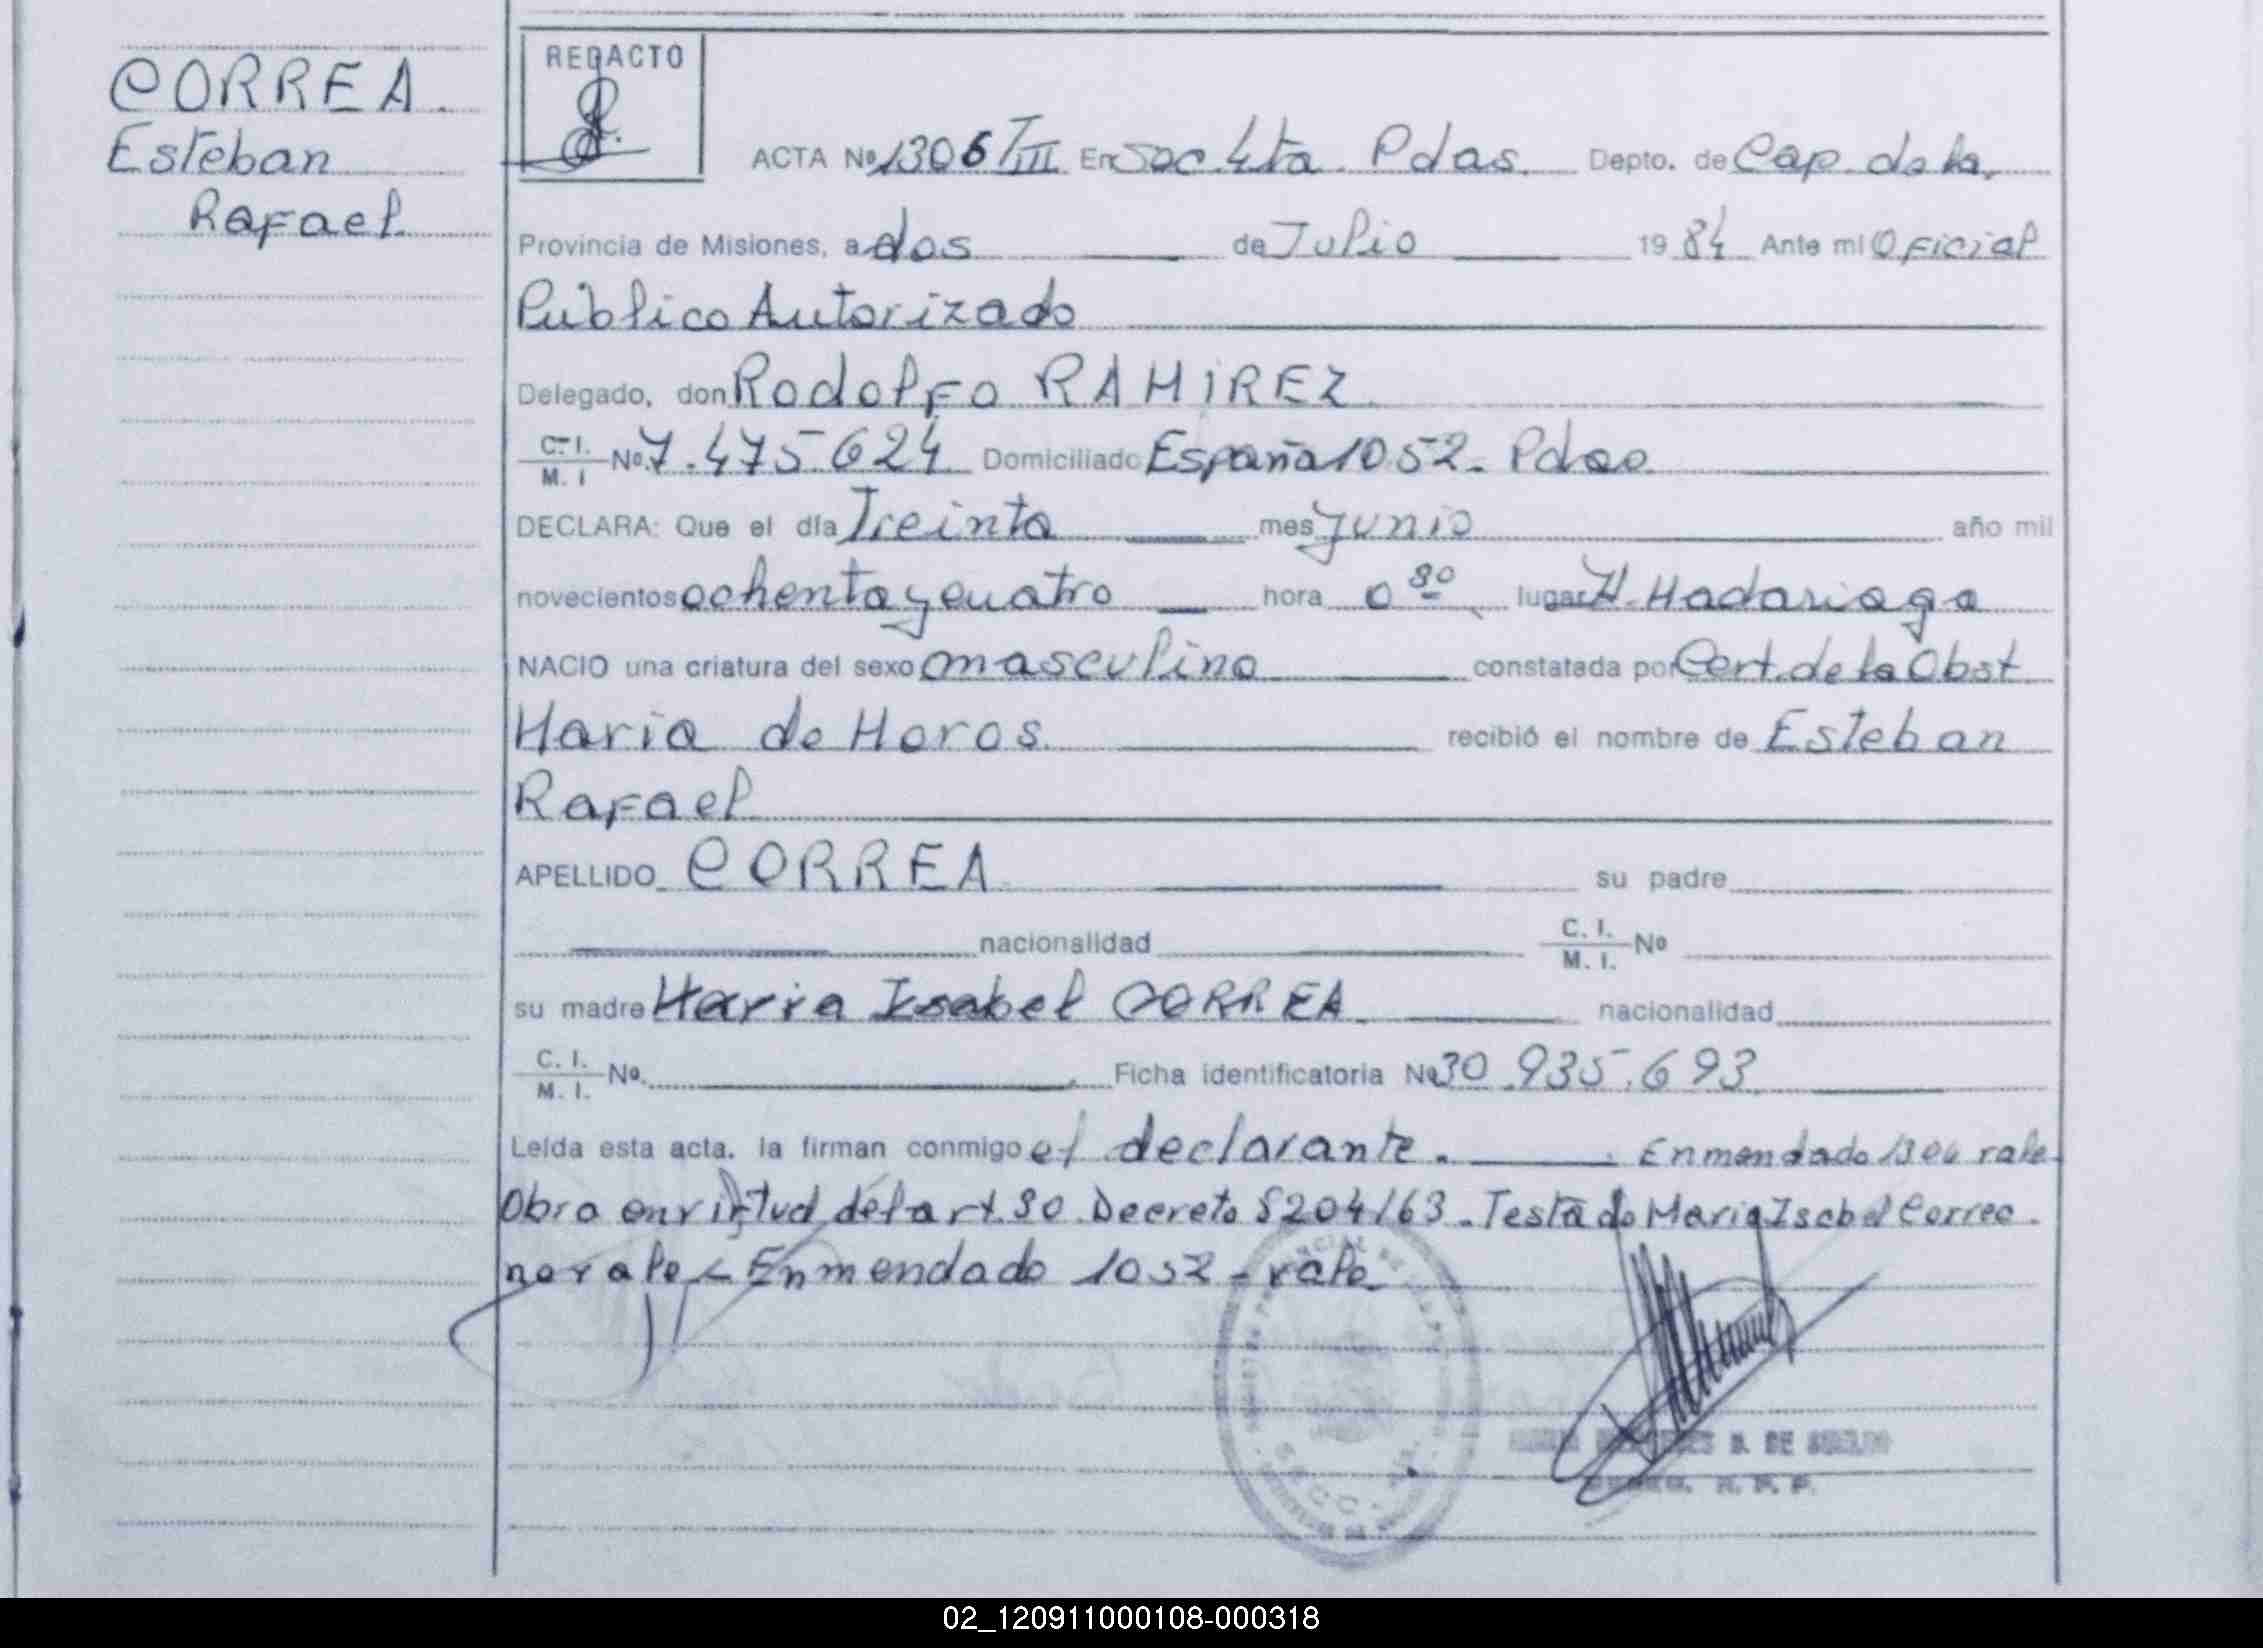 CORREA
Esteban
Rafael
REDACTO
ACTA Nº 1306 T III En Sec 4ta Pdas. Depto. de Cap. de la
Provincia de Misiones, a dos de Julio 1984 Ante mí Oficial
Público Autorizado
Delegado, don Rodolfo RAMIREZ
C. I. / M. I Nº 7.475.624 Domiciliado España 1052 - Pdas
DECLARA: Que el día Treinta mes Junio año mil
novecientos ochenta y cuatro hora 0 30 lugar H. Madariaga
NACIO una criatura del sexo masculino constatada por Cert. de la Obst
Maria de Moros recibió el nombre de Esteban
Rafael
APELLIDO CORREA su padre
nacionalidad C. I. / M. I. Nº
su madre Maria Isabel CORREA nacionalidad
C. I. / M. I. Nº Ficha identificatoria Nº 30.935.693
Leída esta acta, la firman conmigo el declarante. Enmendado 1306 vale
Obra en virtud del art. 30 Decreto 8204/63 - Testado Maria Isabel Correa
no vale - Enmendado 1052 - vale
02_120911000108-000318